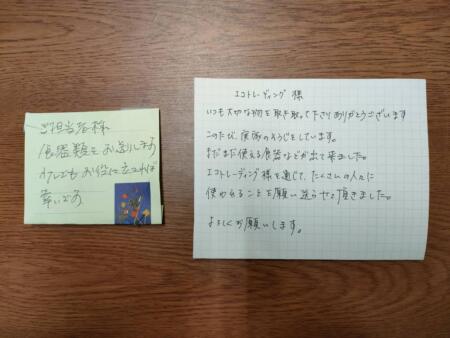 ご担当者様
食器類をお送りします
少しでもお役に立てれば
幸いです
エコトレーディング 様
いつも大切な物を引き取って下さりありがとうございます
このたび、実家のそうじをしています。
まだまだ使える食器などが出て来ました。
エコトレーディング様を通じて、たくさんの人々に
使われることを願い送らせて頂きました。
よろしくお願いします。